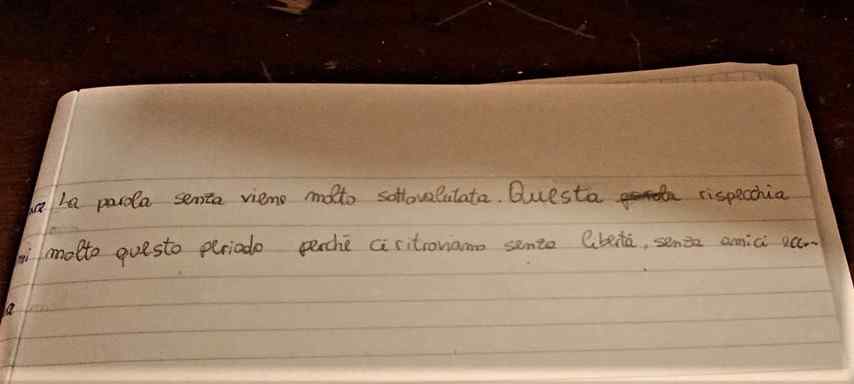 La parola senza viene molto sottovalutata. Questa rispecchia
molto questo periodo perchè ci ritroviamo senza libertà, senza amici ecc...